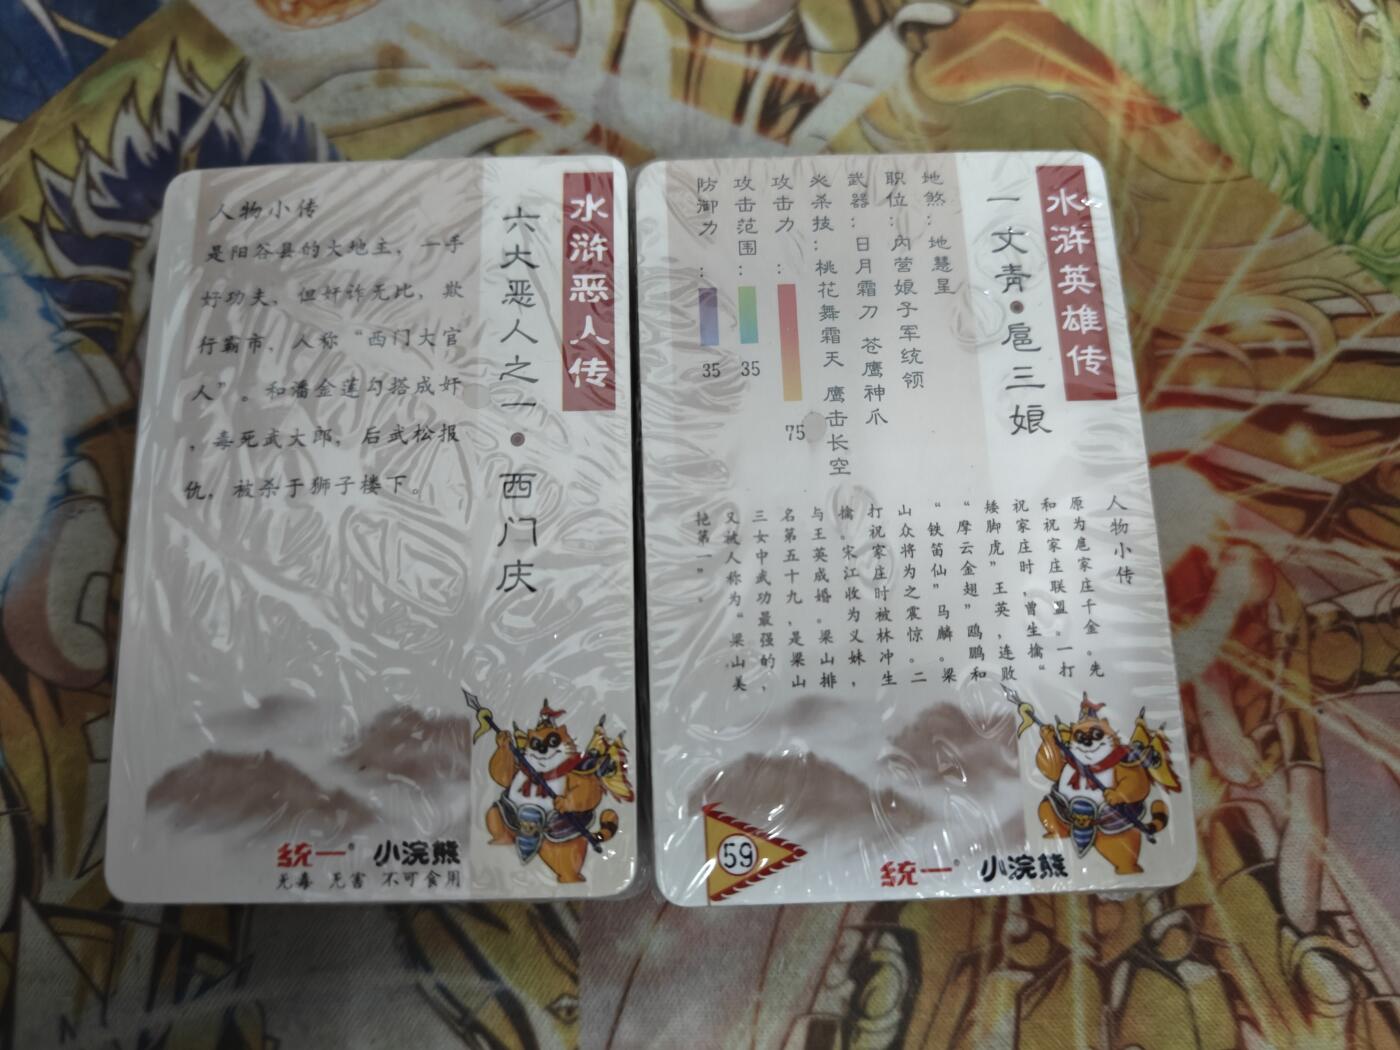 水浒恶人传
六大恶人之一·西门庆
人物小传
是阳谷县的大地主，一手
好功夫，但奸诈无比，欺
行霸市，人称“西门大官
人”。和潘金莲勾搭成奸
，毒死武大郎，后武松报
仇，被杀于狮子楼下。
統一 小浣熊
无毒 无害 不可食用
水浒英雄传
一丈青·扈三娘
地煞：地慧星
职位：内营娘子军统领
武器：日月霜刀 苍鹰神爪
必杀技：桃花舞霜天 鹰击长空
攻击力：75
攻击范围：35
防御力：35
人物小传
原为扈家庄千金。先
和祝家庄联盟。一打
祝家庄时，曾生擒“
矮脚虎”王英，连败
“摩云金翅”鸥鹏和
“铁笛仙”马麟。梁
山众将为之震惊。二
打祝家庄时被林冲生
擒。宋江收为义妹，
与王英成婚。梁山排
名第五十九，是梁山
三女中武功最强的，
又被人称为“梁山美
艳第一”。
59
統一 小浣熊